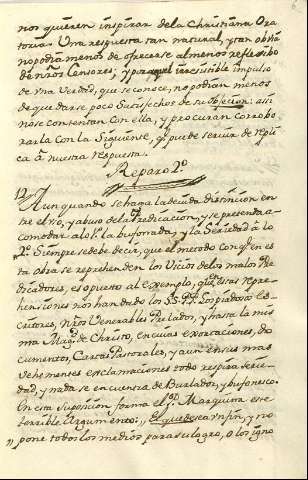 nos quieren inspirar de la Christiana Ora
toria. Una respuesta tan natural, y tan obvia
no podia menos de ofrecerse al menos reflexibo
de nros Censores; y por aquel irresistible impulso
de una Verdad, que se conoce, no podian menos
de quedarse poco Satisfechos de su objecion: assi
no se contentan con ella, y procuran corrobo
rarla con la Siguiente, qe puede servir de repli
ca á nuestra respuesta.
Reparo 2º
12 Aun quando se haga la devida distincion en
tre el vso, y abuso de la Predicacion, y se pretenda a
comodar al 1º la bufonada, y la Seriedad á lo
2º Siempre se debe decir, que el metodo con qe en es
ta obra se reprehenden los Vicios de los malos Pre
dicadores, es opuesto al exemplo, qe en estas repre
hensiones nos han dado los SS. PP. los piadosos Es
critores, nros Venerables Prelados, y hasta la mis
ma Magd de Christo, en cuias exortaciones, do
cumentos, Cartas Pastorales, y aun en sus mas
vehementes exclamaciones todo respira serie
dad, y nada se encuentra de Burlador, y bufonesco.
En esta Suposicion forma el Pe Marquina este
terrible Argumento: „ El que desea un fin, y no
„ pone todos los medios para su logro, o los igno